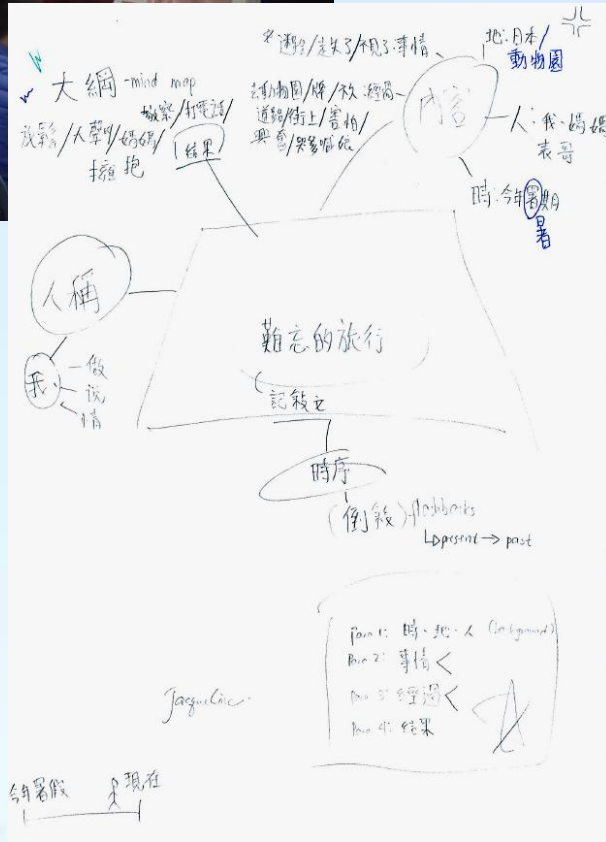 大綱 -mind map
放鬆/大聲叫/媽媽/
擁抱
警察/打電話/
結果
*迷路/走失了/不見了:事情
去動物園/
道路/街上/害怕/
內容
地:日本/
動物園
人:我、媽媽
表哥
時:今年署期
暑
人稱
我
做
説
情
難忘的旅行
記敍文
時序
(倒敍) flashbacks
present → past
Para 1: 時、地、人 (background)
Para 2: 事情 <
Para 3: 經過 <
Para 4: 結果
Jacqueline
今年署假
現在